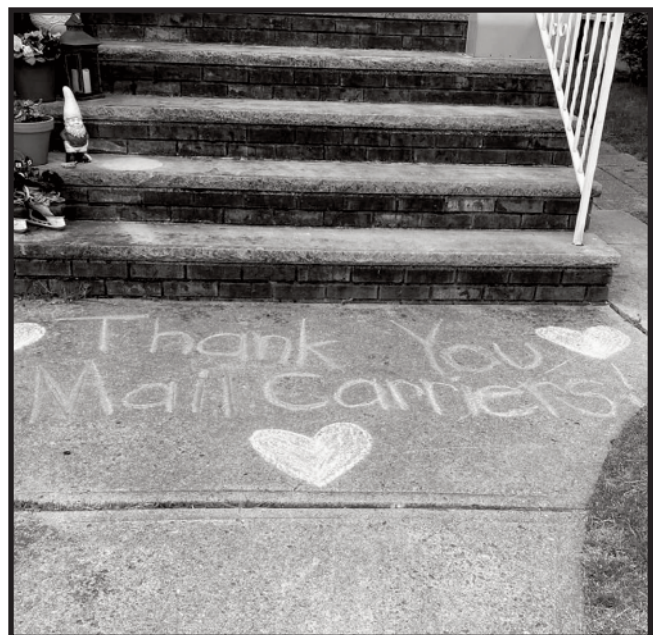 Thank You
Mail Carriers!